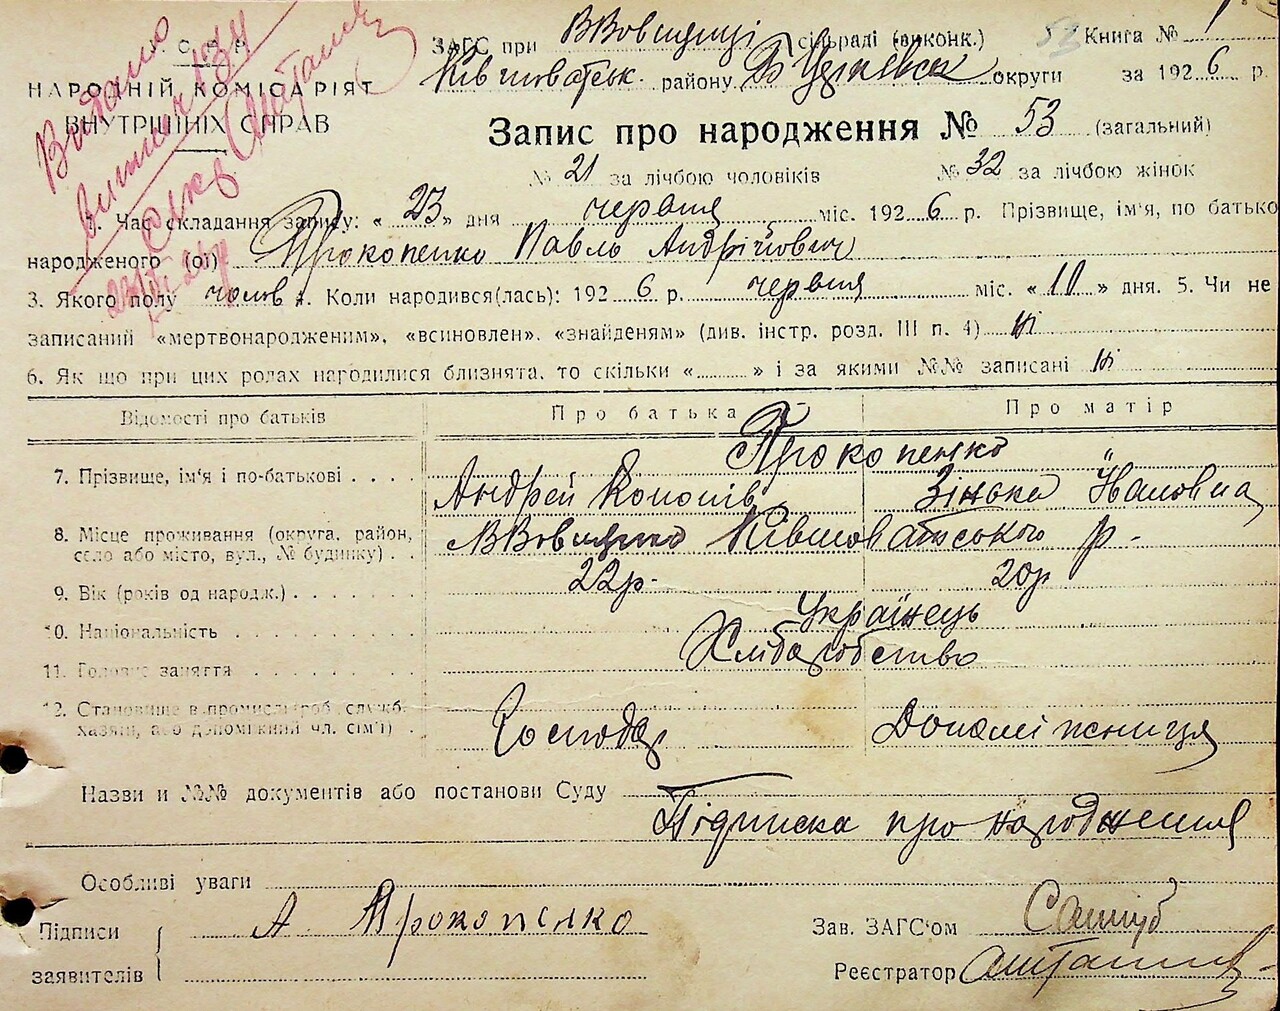 ЗАГС при ВВовнянці сільраді (виконк.) 53 Книга № 1
У. С. Р. Р.
Ківшоватськ. району Б Церківськ округи за 1926 р.
НАРОДНІЙ КОМІСАРІЯТ
ВНУТРІШНІХ СПРАВ
Видано
Запис про народження № 53 (загальний)
№ 21 за лічбою чоловіків № 32 за лічбою жінок
1. Час складання запису: «23» дня червня міс. 1926 р. Прізвище, ім'я, по батько
народженого (ої) Прокопенко Павло Андрійович
3. Якого полу чолов 4. Коли народився(лась): 1926 р. червня міс. «10» дня. 5. Чи не
записаний «мертвонародженим», «всиновлен», «знайденям» (див. інстр. розд. III п. 4) ні
6. Як що при цих ролах народилися близнята, то скільки «........» і за якими №№ записані ні
Відомості про батьків Про батька Про матір
Прокопенко
7. Прізвище, ім'я і по-батькові . . . . Андрей Кононів Зінька Івановна
8. Місце проживання (округа, район, село або місто, вул., № будинку) . Ківшоватського р.
9. Вік (років од народж.) . . . . . . . 22р. 20р
10. Національність . . . . . . . . . . Українець
11. Головне заняття . . . . . . . . . Хліборобство
12. Становище в промислі (роб., служб.
хазяін, або допоміжний чл. сім'ї) . Господар Допоміжниця
Назви и №№ документів або постанови Суду
Підписка про народження
Особливі уваги
Підписи А Прокопенко Зав. ЗАГС'ом
заявителів Реєстратор